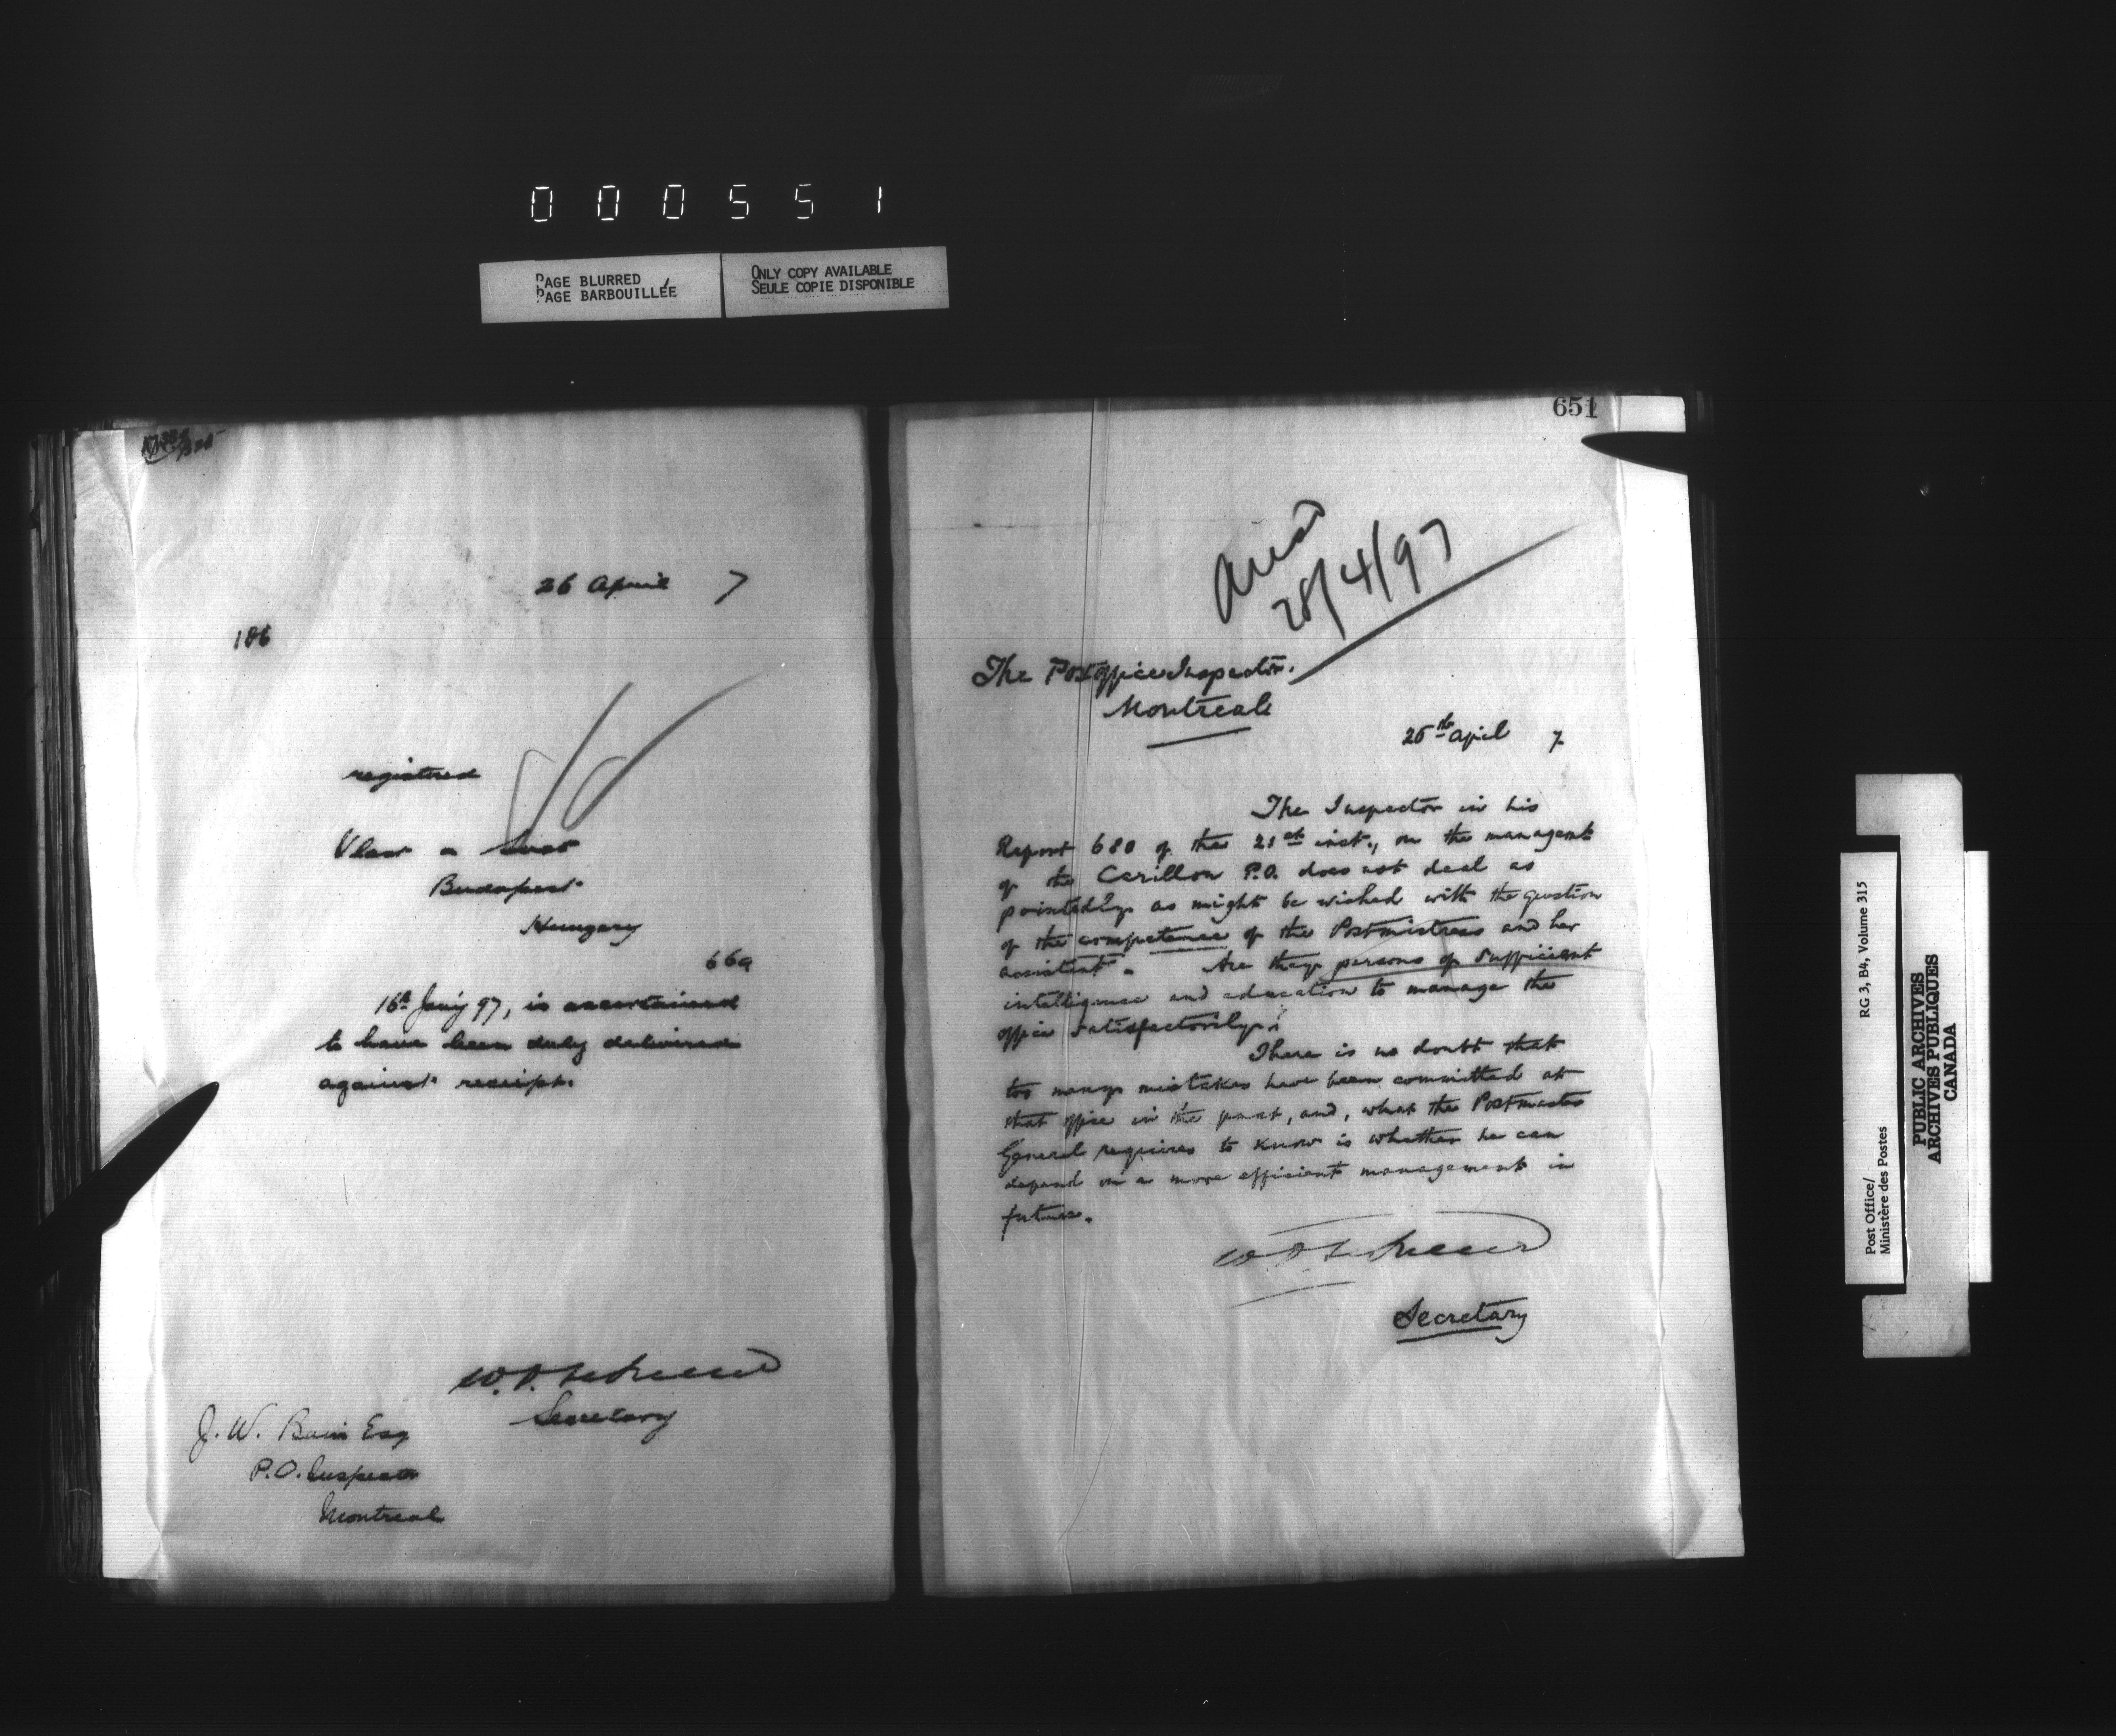 000551
PAGE BLURRED
PAGE BARBOUILLÉE
ONLY COPY AVAILABLE
SEULE COPIE DISPONIBLE
26 April 7
186
registered
Budapest
Hungary
669
16th Jany 97, is ascertained
to have been duly delivered
against receipt.
Secretary
J. W. Bain Esq
P.O. Inspector
Montreal
651
28/4/97
The Post office Inspector.
Montreal
26th April 7
The Inspector in his
Report 680 of the 21st inst., on the managemt
of the Carillon P.O. does not deal as
pointedly as might be wished with the question
of the competence of the Postmistress and her
assistant. Are they persons of sufficient
intelligence and education to manage the
office satisfactorily?
There is no doubt that
too many mistakes have been committed at
that office in the past, and, what the Postmaster
General requires to know is whether he can
depend on a more efficient management in
future.
Secretary
Post Office/
Ministère des Postes
RG 3, B4, Volume 315
PUBLIC ARCHIVES
ARCHIVES PUBLIQUES
CANADA